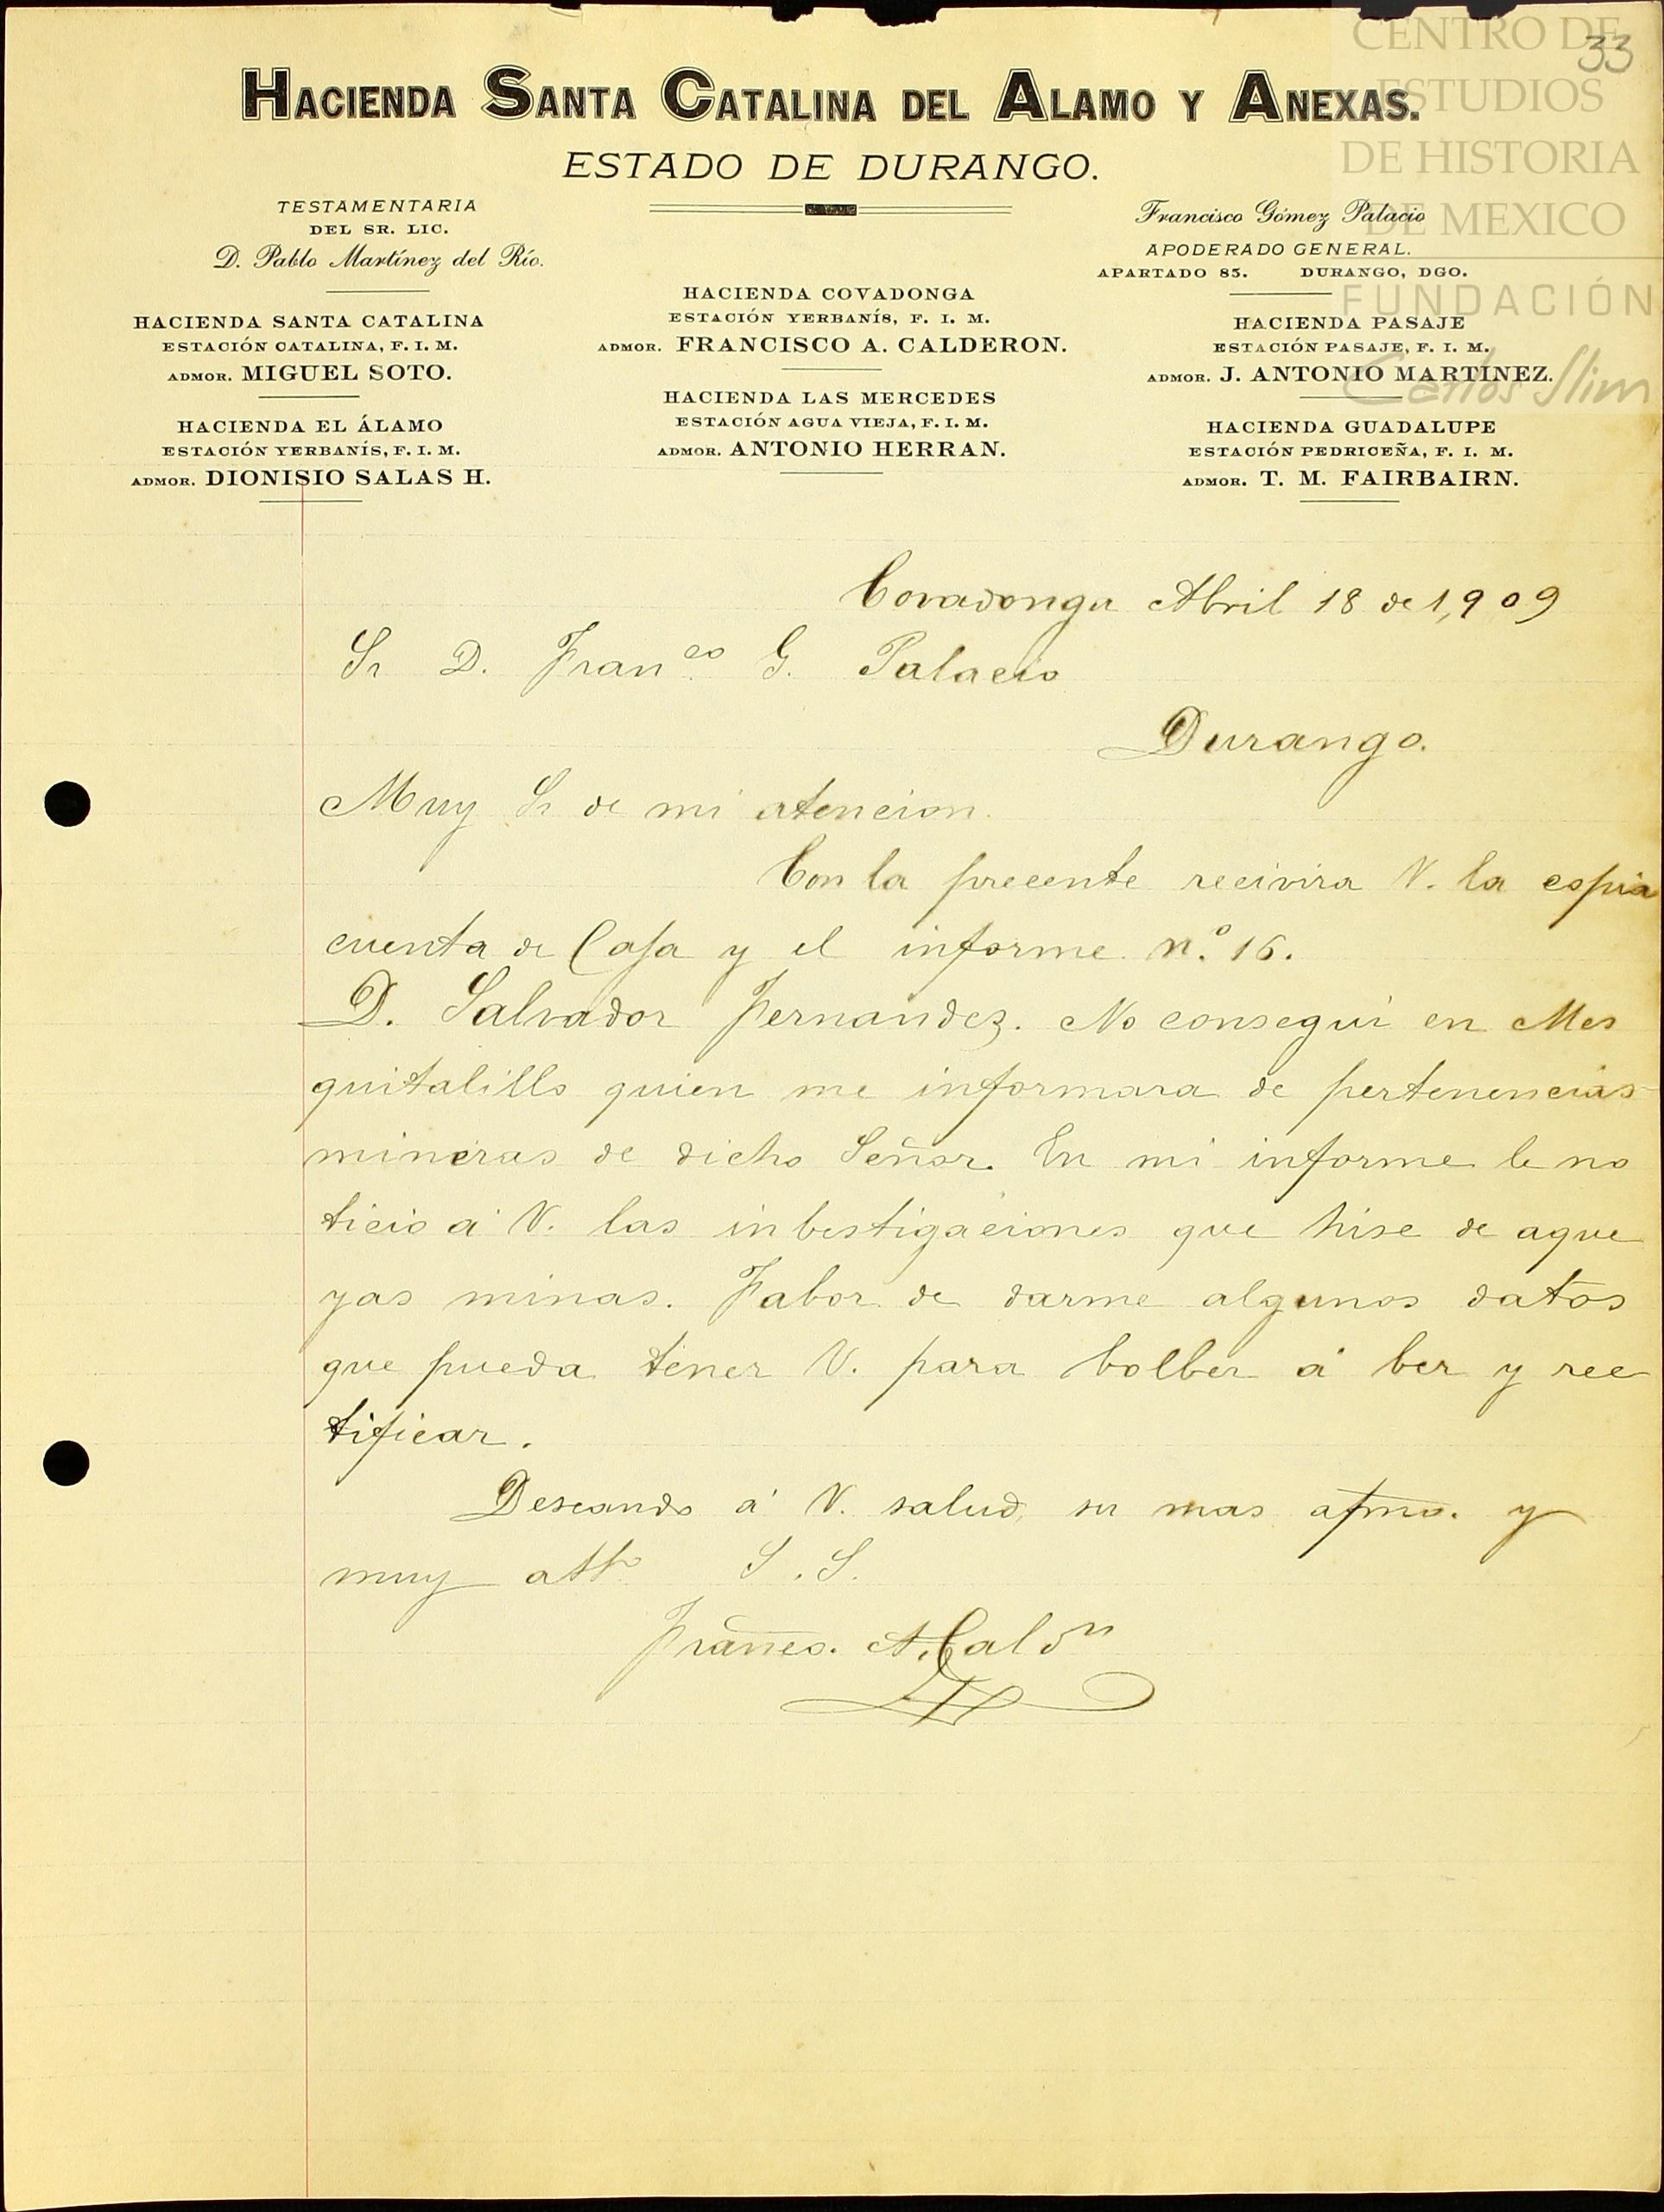 33
CENTRO DE
ESTUDIOS
DE HISTORIA
DE MEXICO
FUNDACIÓN
Carlos Slim
HACIENDA SANTA CATALINA DEL ALAMO Y ANEXAS.
ESTADO DE DURANGO.
TESTAMENTARIA
DEL SR. LIC.
D. Pablo Martínez del Río.
HACIENDA SANTA CATALINA
ESTACIÓN CATALINA, F. I. M.
ADMOR. MIGUEL SOTO.
HACIENDA EL ÁLAMO
ESTACIÓN YERBANÍS, F. I. M.
ADMOR. DIONISIO SALAS H.
HACIENDA COVADONGA
ESTACIÓN YERBANÍS, F. I. M.
ADMOR. FRANCISCO A. CALDERON.
HACIENDA LAS MERCEDES
ESTACIÓN AGUA VIEJA, F. I. M.
ADMOR. ANTONIO HERRAN.
Francisco Gómez Palacio
APODERADO GENERAL.
APARTADO 85. DURANGO, DGO.
HACIENDA PASAJE
ESTACIÓN PASAJE, F. I. M.
ADMOR. J. ANTONIO MARTÍNEZ.
HACIENDA GUADALUPE
ESTACIÓN PEDRICEÑA, F. I. M.
ADMOR. T. M. FAIRBAIRN.
Covadonga Abril 18 de 1,909
Sr D. Franco G. Palacio
Durango.
Muy Sr de mi atencion.
Con la precente recivira V. la copia
cuenta de Caja y el informe n.º 16.
D. Salvador Fernandez. No consegui en Mes
quitalillo quien me informara de pertenencias
mineras de dicho Señor. En mi informe le no
ticio á V. las inbestigaciones que hise de aque
yas minas. Fabor de darme algunos datos
que pueda tener V. para bolber á ber y rec
tificar.
Deseando á V. salud, su mas afmo. y
muy atto S. S.
Franco. A. Caldn